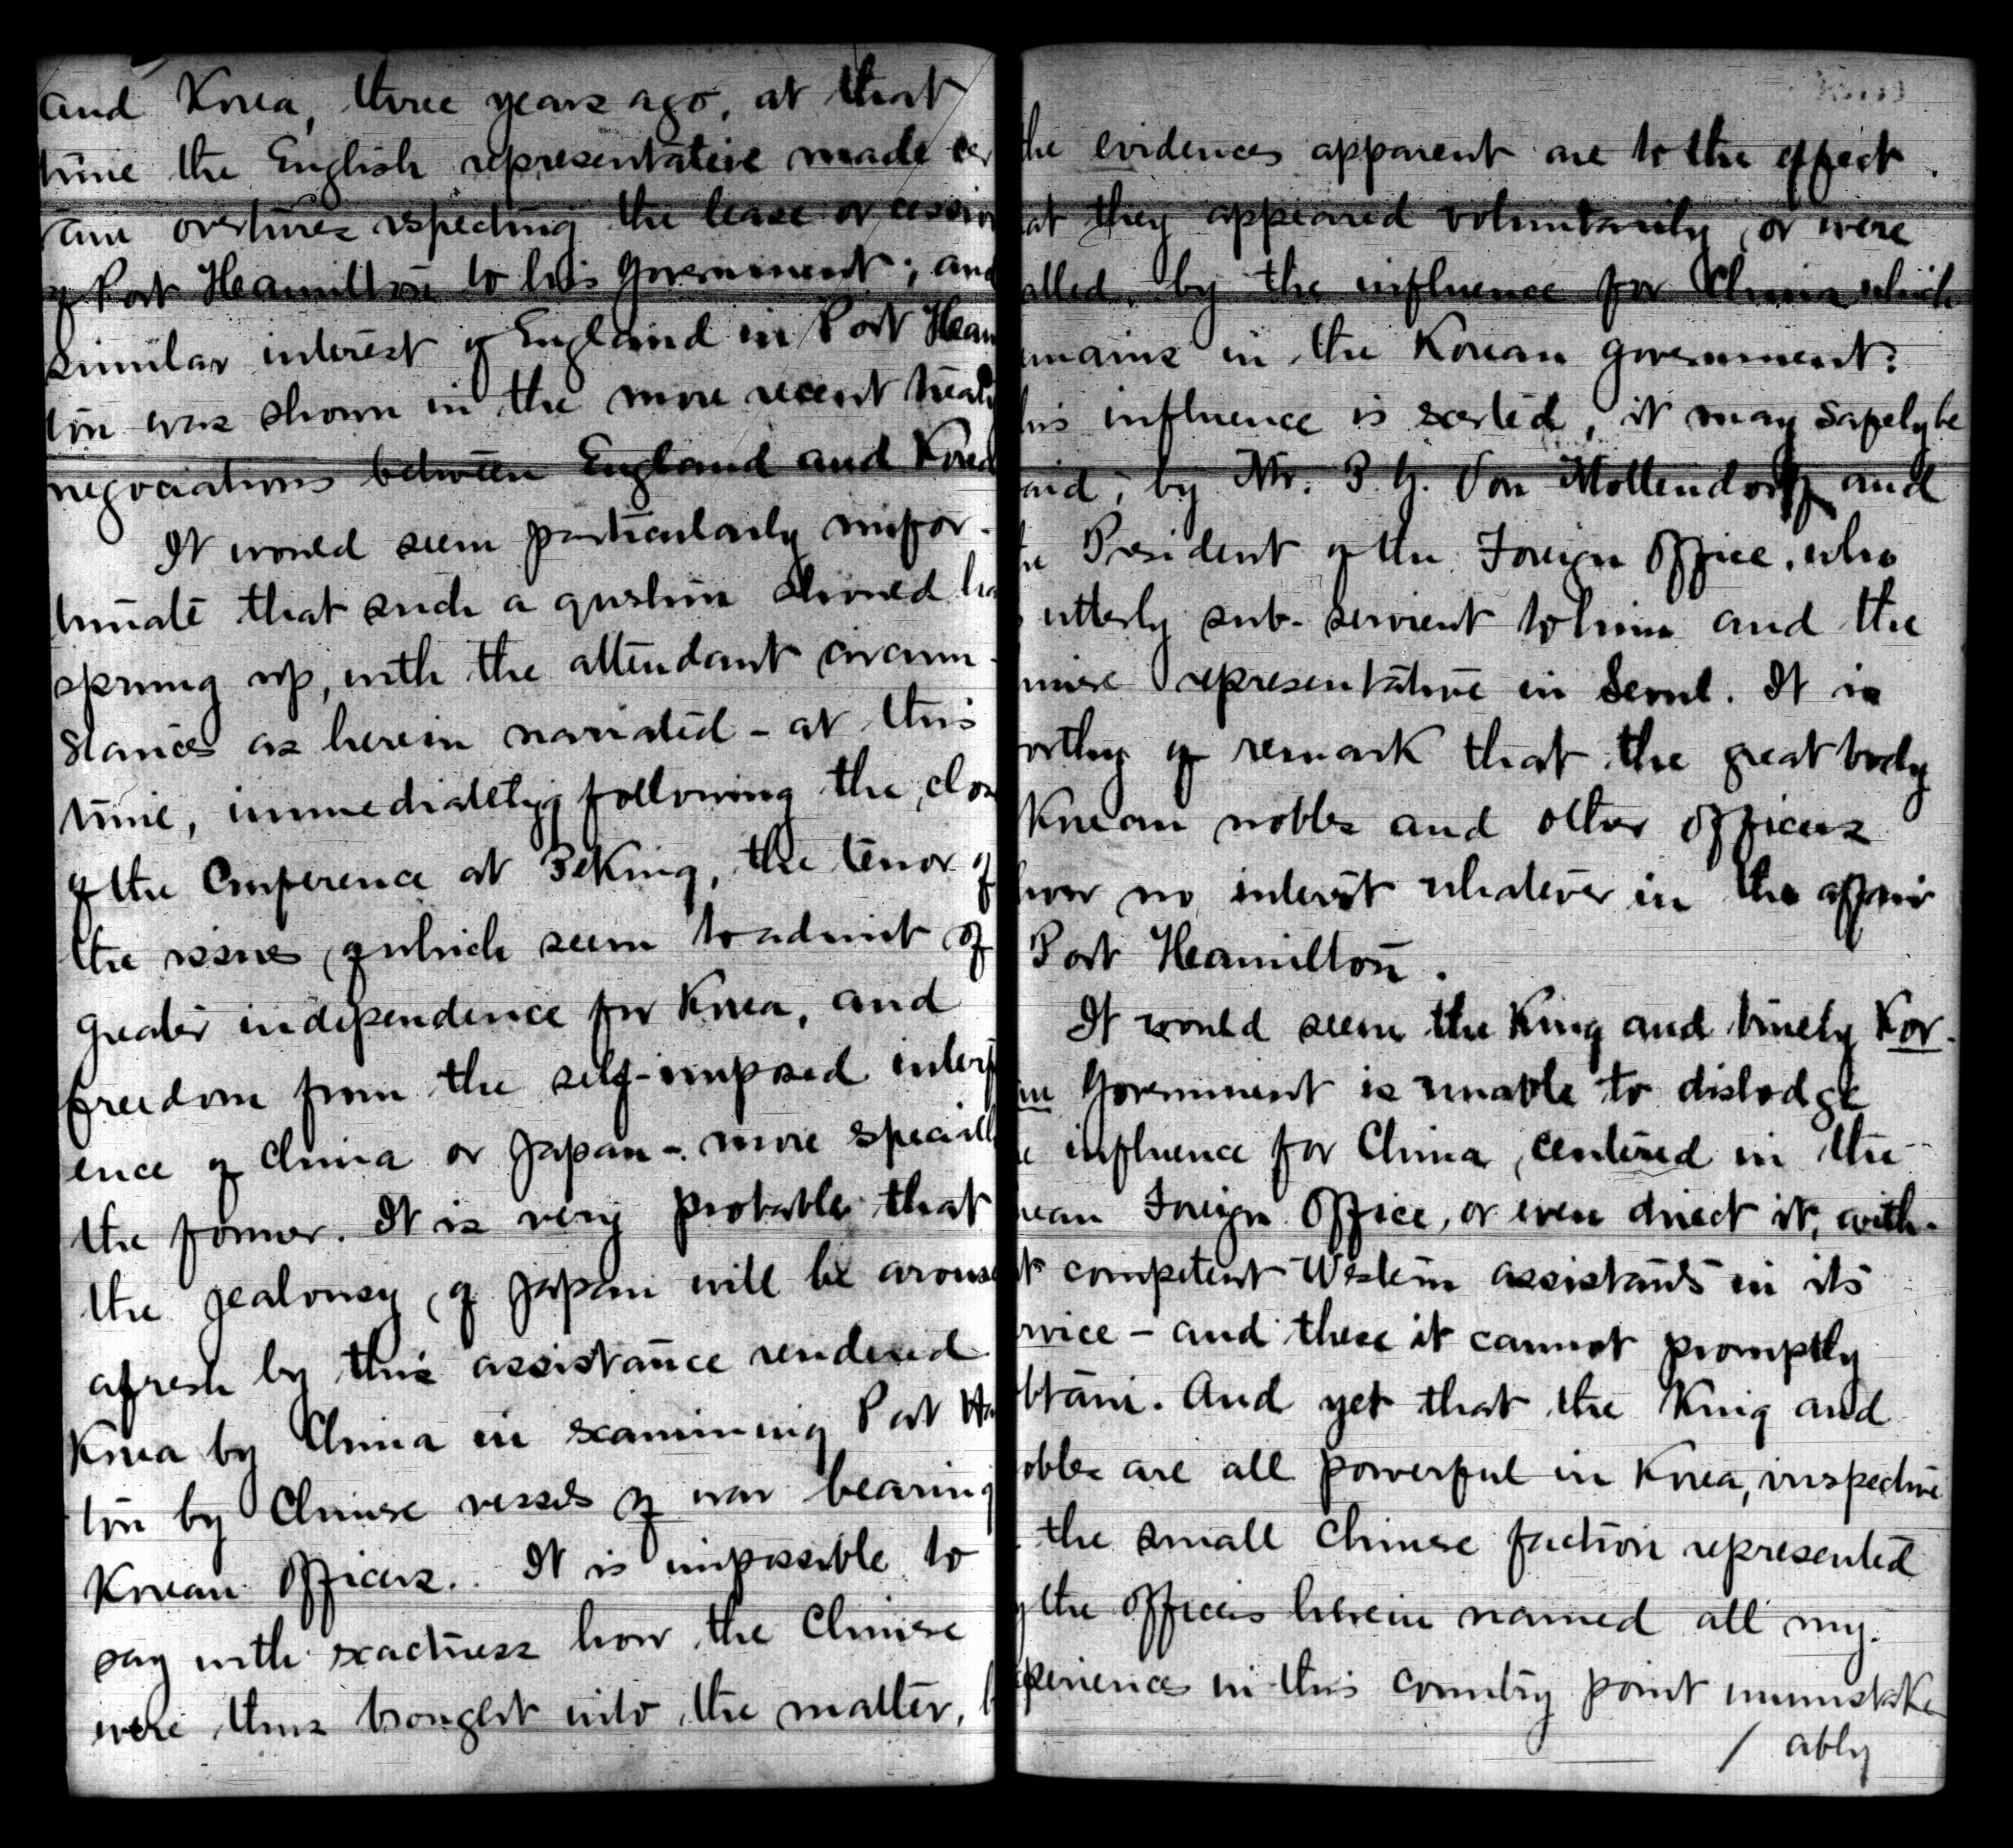 and Korea, three years ago, at that
time the English representative made cer
tain overtures respecting the lease or cession
of Port Hamilton to his Government; and
similar interest of England in Port Ham
ton was shown in the more recent treaty
negociations between England and Korea
It would seem particularly unfor-
tunate that such a question should ha
sprung up, with the attendant circum-
stances as herein narrated - at this
time, immediately following the clos
of the Conference at Peking, the tenor of
the issues of which seem to admit of
greater independence for Korea, and
freedom from the self-imposed interf
ence of China or Japan - more speciall
the former. It is very probable that
the jealousy of Japan will be arous
afresh by this assistance rendered
Korea by China in examining Port Ha
ton by Chinese vessels of war bearing
Korean officers. It is impossible to
say with exactness how the Chinese
were thus brought into the matter, b
the evidences apparent are to the effect
at they appeared voluntarily, or were
alled, by the influence for China which
mains in the Korean Government.
his influence is exerted, it may safely be
aid, by Mr. P. G. Von Mollendorff and
he President of the Foreign Office, who
utterly sub-servient to him and the
inese representative in Seoul. It is
orthy of remark that the great body
Korean nobles and other officers
how no interest whatever in the affair
Port Hamilton.
It would seem the King and timely Kor-
an Government is unable to dislodge
e influence for China, centered in the
rean Foreign Office, or even direct it, with-
t competent Western assistants in its
rvice - and these it cannot promptly
btain. And yet that the King and
obles are all powerful in Korea, irrespective
the small Chinese faction represented
y the officers herein named all my
perience in this country point unmistak
/ ably